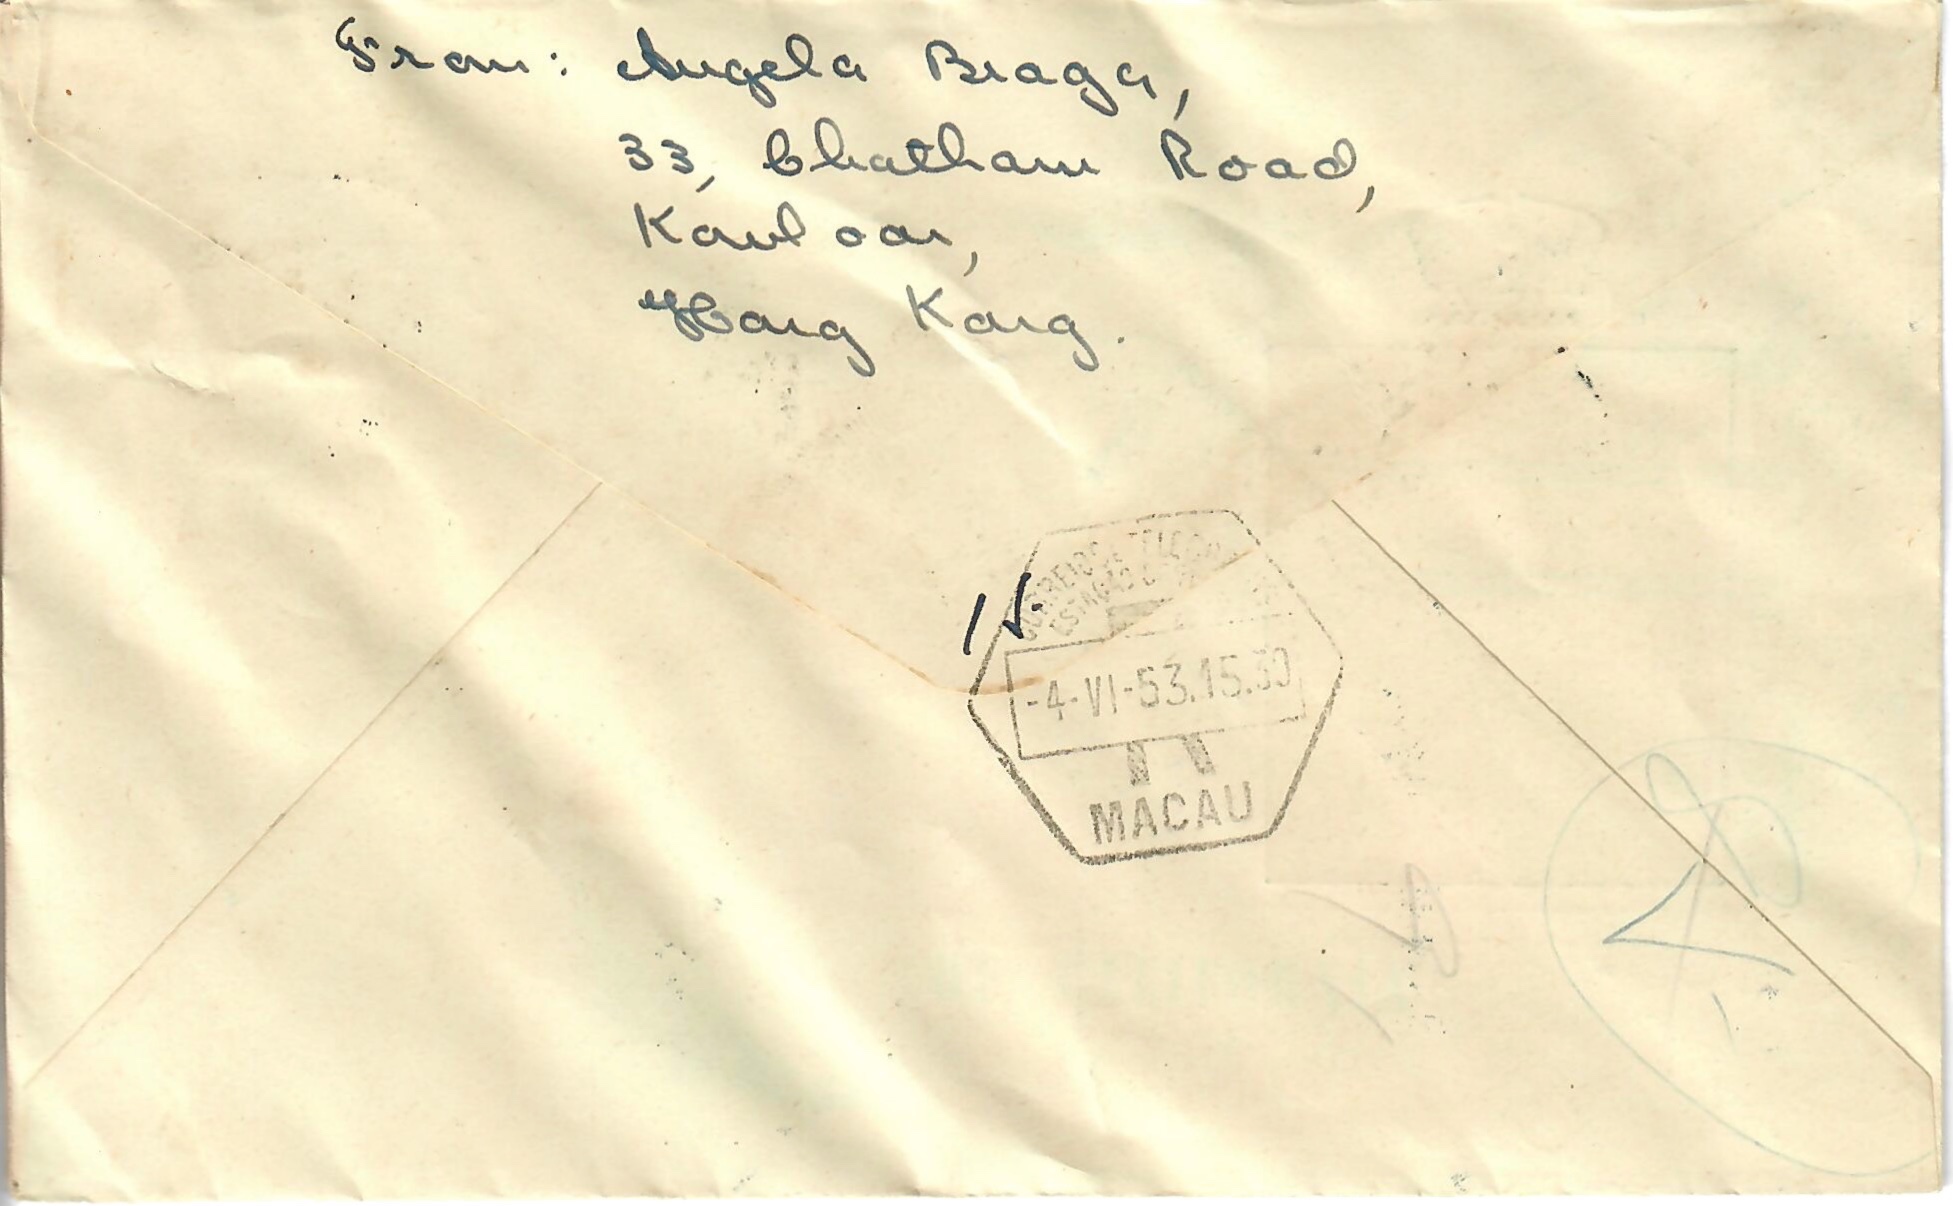 From: Angela Braga,
33, Chatham Road,
Kowloon,
Hong Kong.
CORREIOS E
ESTAÇÃO
-4-VI-53.15.30
MACAU